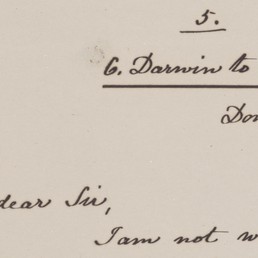 5.
6. Darwin to
dear Sir,
I am not